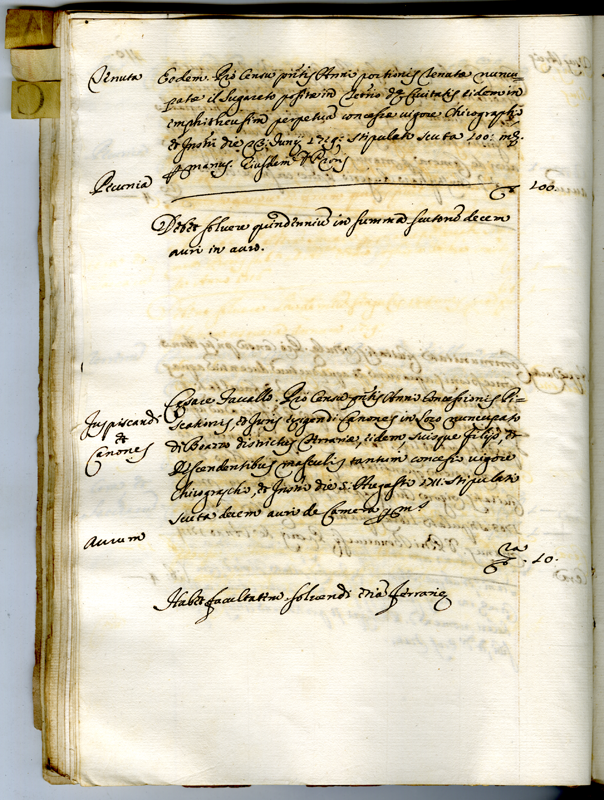 Tenuta
Eodem. Pro Censu pntis Anni portionis Tenutae nuncu-
patae il Sugareto positae in Terrio dae Civitatis eidem in
emphitheusim perpetuam concessae vigore Chirographi
et Instri die 23 Junij 1725: stipulati scuta 100: m
p manus. Ejusdem
Pecunia
100.
Debet solvere quindennium in summa scutorum decem
auri in auro.
Jus piscandi
et
Canones
Cesare Facello. Pro Censu pntis Anni Concessionis Pi-
scationis, et Juris exigendi Canones in Loco nuncupato
di districtus Ferrariae, eidem, suisque filijs, et
Descendentibus masculis tantum concessae vigore
Chirographi, et Instri die 5: Augusti 1711: stipulati
scuta decem auri de Camera
Aurum
10.
Habet facultatem solvendi etia Ferrariae